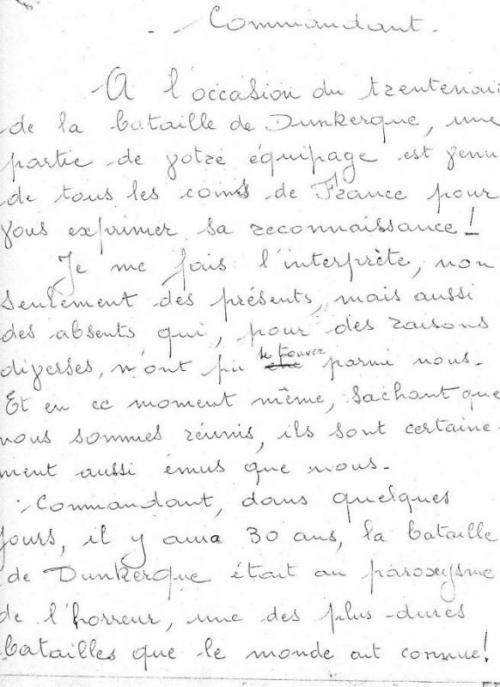 Commandant.
A l'occasion du trentenaire
de la bataille de Dunkerque, une
partie de votre équipage est venu
de tous les coins de France pour
vous exprimer sa reconnaissance !
Je me fais l'interprète, non
seulement des présents, mais aussi
des absents qui, pour des raisons
diverses, n'ont pu se trouver parmi nous.
Et en ce moment même, sachant que
nous sommes réunis, ils sont certaine-
ment aussi émus que nous.
Commandant, dans quelques
jours, il y aura 30 ans, la bataille
de Dunkerque était au paroxysme
de l'horreur, une des plus dures
batailles que le monde ait connue !